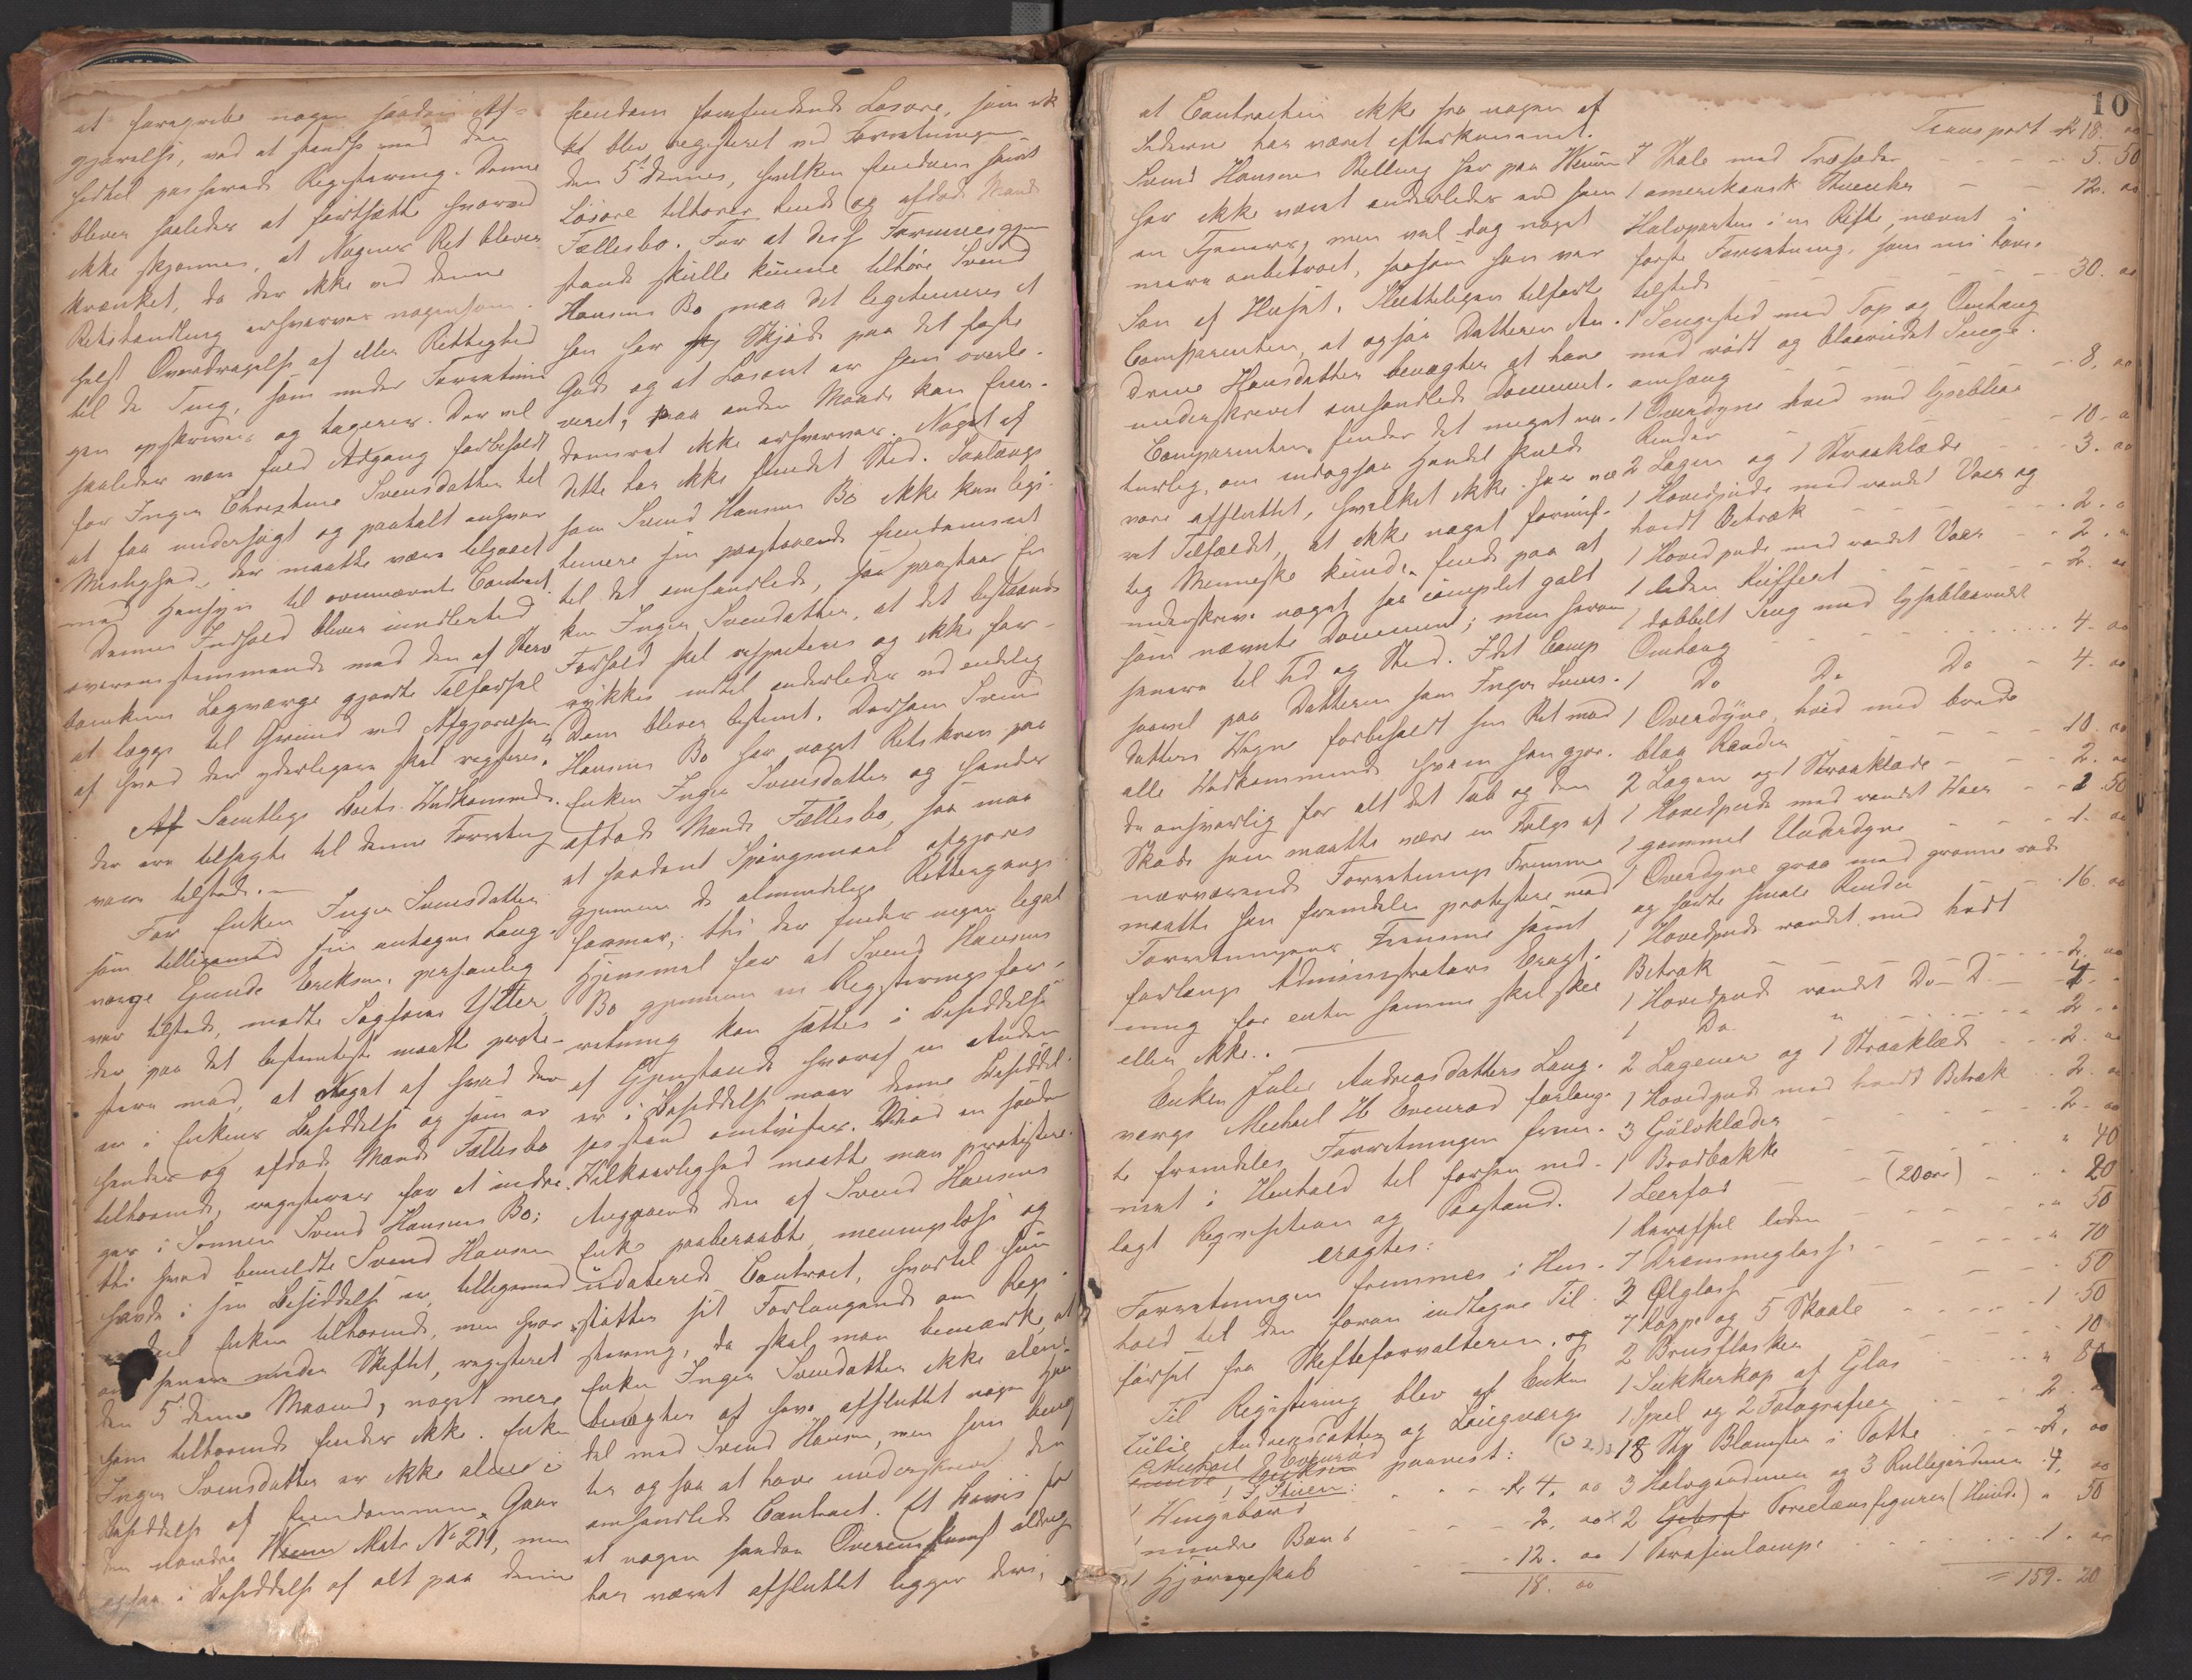 at foregribe nogen saadan Af-
gjørelse, ved at standse med den
hidtil passerede Registrering. Denne
bliver saaledes at fortsætte hvorved
ikke skjønnes, at Nogens Ret bliver
krænket, da der ikke ved denne
Retshandling erhverves nogensom-
helst Overdragelse af eller Rettighed
til de Ting, som under Forretnin-
gen opskrives og tageres. Der vil
saaledes være fuld Adgang forbeholdt
for Inger Christine Svensdatter til
at faa undersøgt og paatalt enhver
Mislighed, der maatte være tilgaaet
med Hensyn til ovennævnte Contract.
Dennes Indhold bliver imidlertid
overensstemmende med den af
Laugværge gjorte Tilførsel
at lægge til Grund ved Afgjørelsen
af hvad der yderligere skal registreres."
Af Samtlige Boets Vedkommende.
der ere tilsagte til denne Forretning
vare tilstede. —
For Enken Inger Svensdatter
som tilligemed sin antagne Laug-
værge Gunde Eriksen, personlig
var tilstede, mødte Sagfører Ytter
der paa det bestemteste maatte prote-
stere mod, at Noget af hvad der
er i Enkens Besiddelse og som er
hendes og afdøde Mands Fællesbo
tilhørende, registreres for at indre-
ges i Sønnen Svend Hansens Bo;
thi hvad bemeldte Svend Hansen
havde i sin Besiddelse er, tilligemed
en Del Enken tilhørende, men hvor-
om senere under Skiftet, registreret
den 5te denne Maaned, noget mere
ham tilhørende findes ikke. Enken
Inger Svensdatter er ikke alene i
Besiddelse af Eiendommen, Gaar-
den nordre Matr No 211, men
ogsaa i Besiddelse af alt paa denne
Eiendom forefindende Løsøre, som ik-
ke blev registreret ved Forretningen
den 5te dennes, hvilken Eiendom samt
Løsøre tilhører hende og afdøde Mands
Fællesbo. For at disse Formuesgjen-
stande skulle kunne tilhøre Svend
Hansens Bo maa det legitimeres at
han har Skjøde paa det faste
Gods og at Løsøret er ham overle-
veret; paa anden Maade kan Eien-
domsret ikke erhverves. Noget af
dette har ikke fundet Sted. Saalænge
som Svend Hansens Bo ikke kan legi-
timere sin paastaaende Eiendomsret
til det omhandlede, saa paastaar En-
ken Inger Svendatter, at det bestaaende
Forhold skal respecteres og ikke for-
rykkes indtil anderledes ved endelig
Dom bliver bestemt. Dersom Svend
Hansens Bo har noget Retskrav paa
Enken Inger Svensdatter og hendes
afdøde Mands Fællesbo, saa maa
et saadant Spørgsmaal afgjøres
gjennem de almindelige Rettergangs-
former, thi der findes ingen legal
Hjemmel for at Svend Hansens
Bo gjennem en Registreringsfor-
retning kan sættes i Besiddelse
af Gjenstande hvoraf en Anden
er i Besiddelse naar denne Besiddel-
sesstand omtvistes. Mod en saadan
Vilkaarlighed maatte man protestere.
Angaaende den af Svend Hansens
Enke paaberaabte, meningsløse og
udaterede Contract, hvortil hun
støtter sit Forlangende om Regi-
strering, da skal man bemærke, at
Enken Inger Svendatter ikke alene
benegter at have afsluttet nogen Han-
del med Svend Hansen, men hun beneg-
ter ogsaa at have underskrevet den
omhandlede Contract. Et Beviis for
at nogen saadan Overenskomst aldrig
har været afsluttet ligger deri,
10
at Contracten ikke fra nogen af
Siderne har været efterkommet.
Svend Hansens Stilling her paa
har ikke været anderledes end som
en Tjeners, men vel dog noget
mere anbetroet, saasom han var
Søn af Huset. Sluttelignen tilførte
Comparenten, at ogsaa Datteren An-
drine Hansdatter benægter at have
underskrevet omhandlede Document.
Comparenten finder det meget na-
turlig, om endogsaa Handel skulde
være afsluttet, hvilket ikke har væ-
ret Tilfældet, at ikke noget fornuf-
tig Menneske kunde finde paa at
underskrive noget saa complet galt
som nævnte Document; men herom
senere til Tid og Sted. Idet Comp.
saavel paa Datteren som Inger Svens-
datters Vegne forbeholdt sin Ret mod
alle Vedkommende hvem han gjør-
de ansvarlig for alt det Tab og den
Skade som maatte være en Følge af
nærværende Forretnings Fremme
maatte han fremdeles protestere mod
Forretningens Fremme samt
forlange Administrators Eragt-
ning for enten samme skal skee
eller ikke. —
Enken Julie Andreasdatters Laug-
værge Michael H Evenrød forlang-
te fremdeles Forretningen frem-
met i Henhold til forhen ned-
lagt Reqvisition og Paastand.
eragtes:
Forretningen fremmes i Hen-
hold til den foran indtagne Til-
førsel fra Skifteforvalteren. og
Til Registrering blev af Enken
Julie Andreasdatter og Laugværge
Michael Evenrød paavist:
I Stuen:
1 Vingebord kr 4. 00
1 mindre Bord 2. 00
1 Hjørneskab 12. 00
18. 00
Transport kr 18. 00
7 Stole med Træsæder 5. 50
1 amerikansk 12. 00
Halvparten i en Rifle, nævnt i
første Forretning, som nu haves
tilstede 30. 00
1 Sengested med Top og Omhæng
med rødt og blaarudet Senge-
omhæng 8. 00
1 Overdyne hvid med lyseblaa
Render 10. 00
2 Lagen og 1 Straaklæde 3. 00
1 Hovedpude med randet Vaar og
hvidt Betræk 2. 00
1 Hovedpude med randet Vaar 2. 00
1 liden Kuffert 2. 00
1 dobbelt Seng med lyseblaarudet
Omhæng 4. 00
1 Do Do Do 4. 00
1 Overdyne, hvid med brede
blaa Render 10. 00
2 Lagen og 1 Straaklæde 2. 00
1 Hovedpude med randet Vaar 50
1 gammel Underdyne 1. 00
1 Overdyne graa med grønne røde
og sorte smale Render 16. 00
1 Hovedpude randet med hvidt
Betræk 2. 00
1 Hovedpude randet Do D.
1 Do " 2
2 Lagener og 1 Straaklæde 2. 00
1 Hovedpude med hvidt Betræk 2. 00
3 Gulvklæder 2. 00
1 Brødbakke " 40
1 Leerfad (20 øre) " 20
1 Karaffel liden " 50
7 Drammeglasse " 70
3 Ølglass 50
7 Koppe og 5 Skaale 1 50
2 Brusflasker 10
1 Sukkerkop af Glas " 80
1 Speil og 2 Fotografier 2
18 Stk Blomster i Potte 2. 00
3 Halvgardiner og 3 Rullegardiner 4. 00
x 2 Porcelænsfigurer (Hunde) " 50
1 Parafinlampe 1. 00
= 159. 20